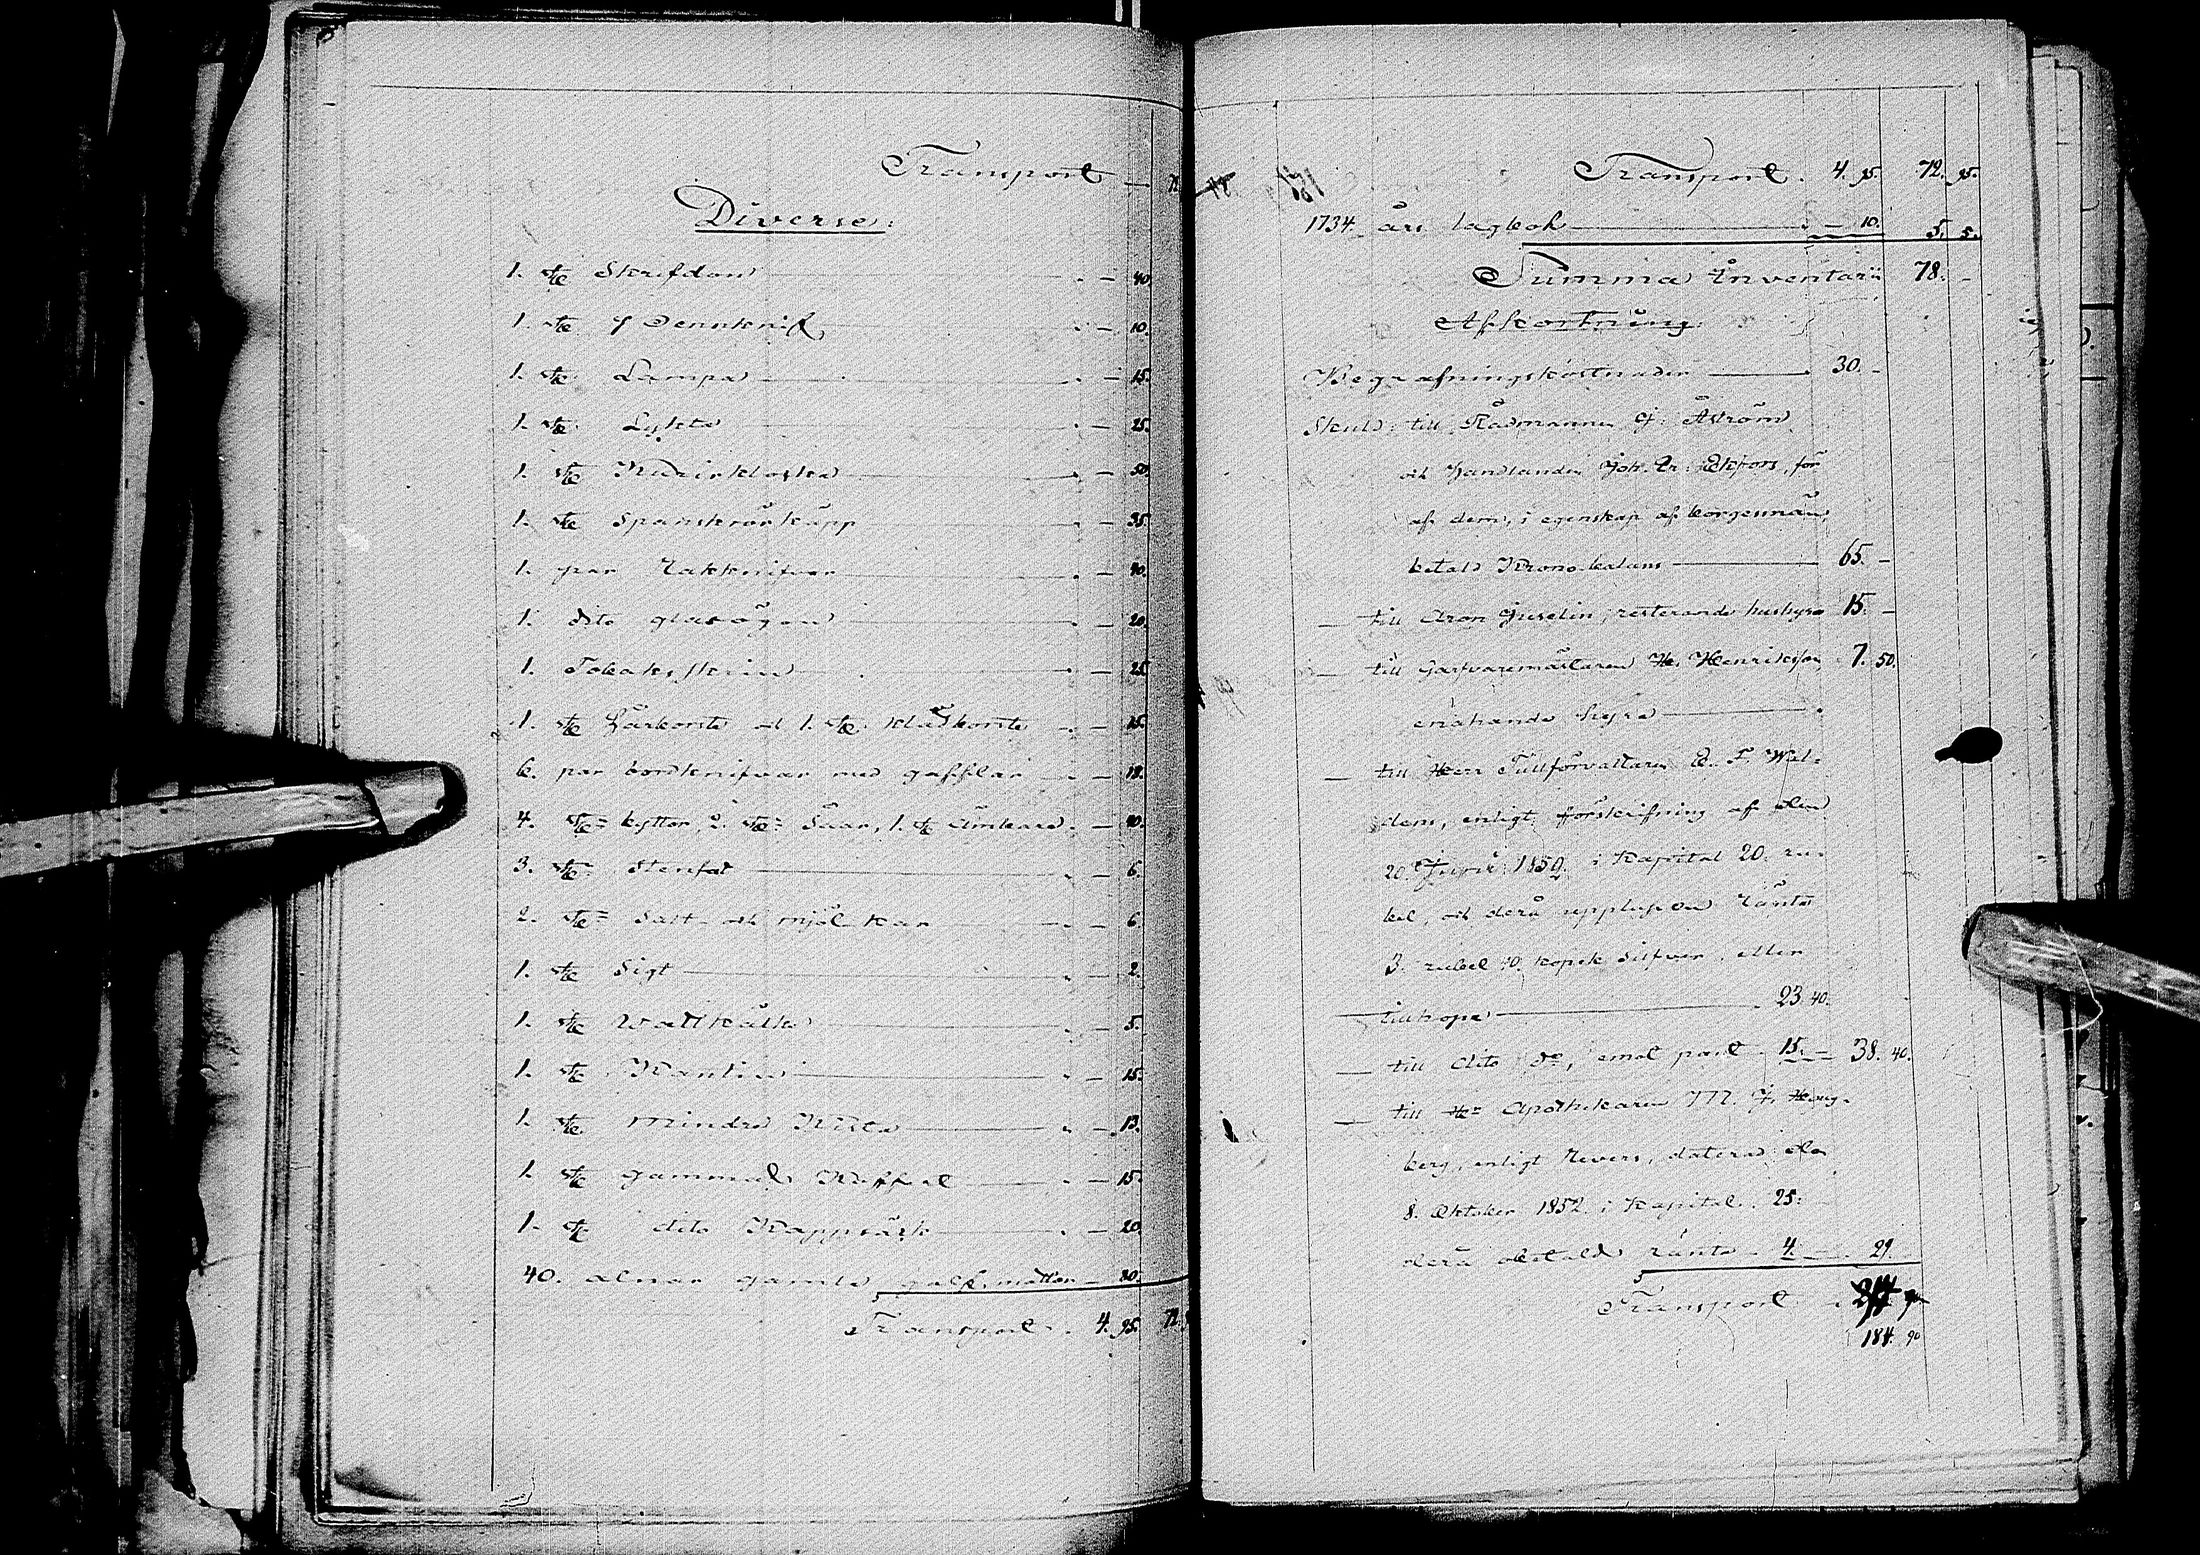 Transport — 72.
Diverse:
1. st. Skrifdon — 40.
1. st. Pennknif — 10.
1. st. Lampa — 15.
1. st. Lykta — 25.
1. st. — 50.
1. st. Spanskrörkäpp — 35.
1. par Rakknifvar — 40.
1. dito glasögon — 20.
1. Tobaksskrin — 25.
1. st. hårborste och 1. st. klädborste — 15.
6. par bordknifvar med gafflar — 18.
4. st. byttor, 2. st. Såar, 1. st. Ämbare — 10.
3. st. Stenfat — 6.
2. st. Salt- och mjöl kar — 6.
1. st. Sigt — 2.
1. st. — 5.
1. st. Kantin — 15.
1. st. mindre Kista — 13.
1. st. gammal Kuffert — 15.
1. st. dito Kappsäck — 20.
40. alnar gamla golf mattor — 80.
Transport. 4. 95. 72.
Transport. 4. 95. 72. 95.
1734 års lagbok — 10. 5. 5.
Summa Inventarii 78. –
Afkortning.
Begrafningskostnader — 30. –
Skuld: till Rådmannen J. Åström
och Handlanden Joh. Er. Ekfors, för
af dem, i egenskap af borgesmän,
betald Krono balans — 65. –
— till Aron Juselin, resterande hushyra 15. –
— till Garfvaremästaren H. Henriksson 7. 50.
enahanda hyra —
— till Herr Tullförvaltaren E. F. Wal-
dem, enligt förskrifning af den
20. Junii 1850. i Kapital 20. ru-
bel, och derå upplupen ränta
3. rubel 40. kopek silfver, eller
tillhopa — 23. 40.
— till dito do, emot pant. 15. – 38. 40.
— till Hr Apothekaren J. Heug-
berg, enligt Revers, daterad den
8. Oktober 1852. i Kapital. 25.
derå obetald ränta – 4. — 29.
Transport –
184. 90